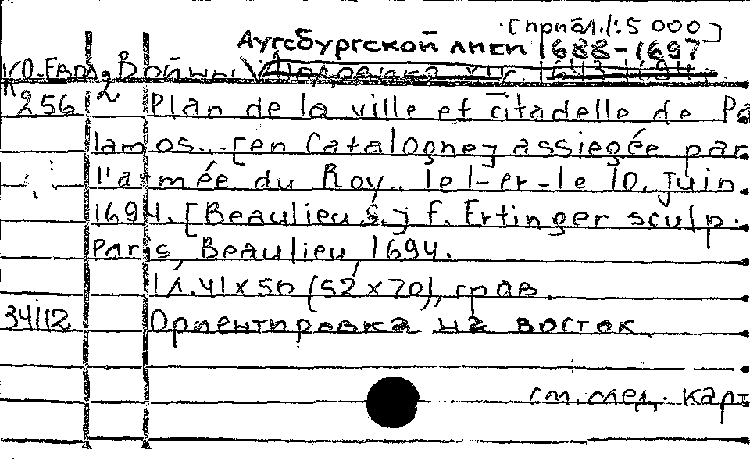 [прибл. 1:5 000]
Аугсбургской лиги 1688-1697
КО. Евр. 2 Войны
256 Plan de la ville et citadelle de Pa
lamos.. [en Catalogne] assiegée par
l'armée du Roy.. le 1-er-le 10. Juin.
1694. [Beaulieu S.] F. Ertinger sculp.
Paris, Beaulieu, 1694.
1 л. 41x56 (52x70), грав.
34112 Ориентировка на восток.
см. след. карт